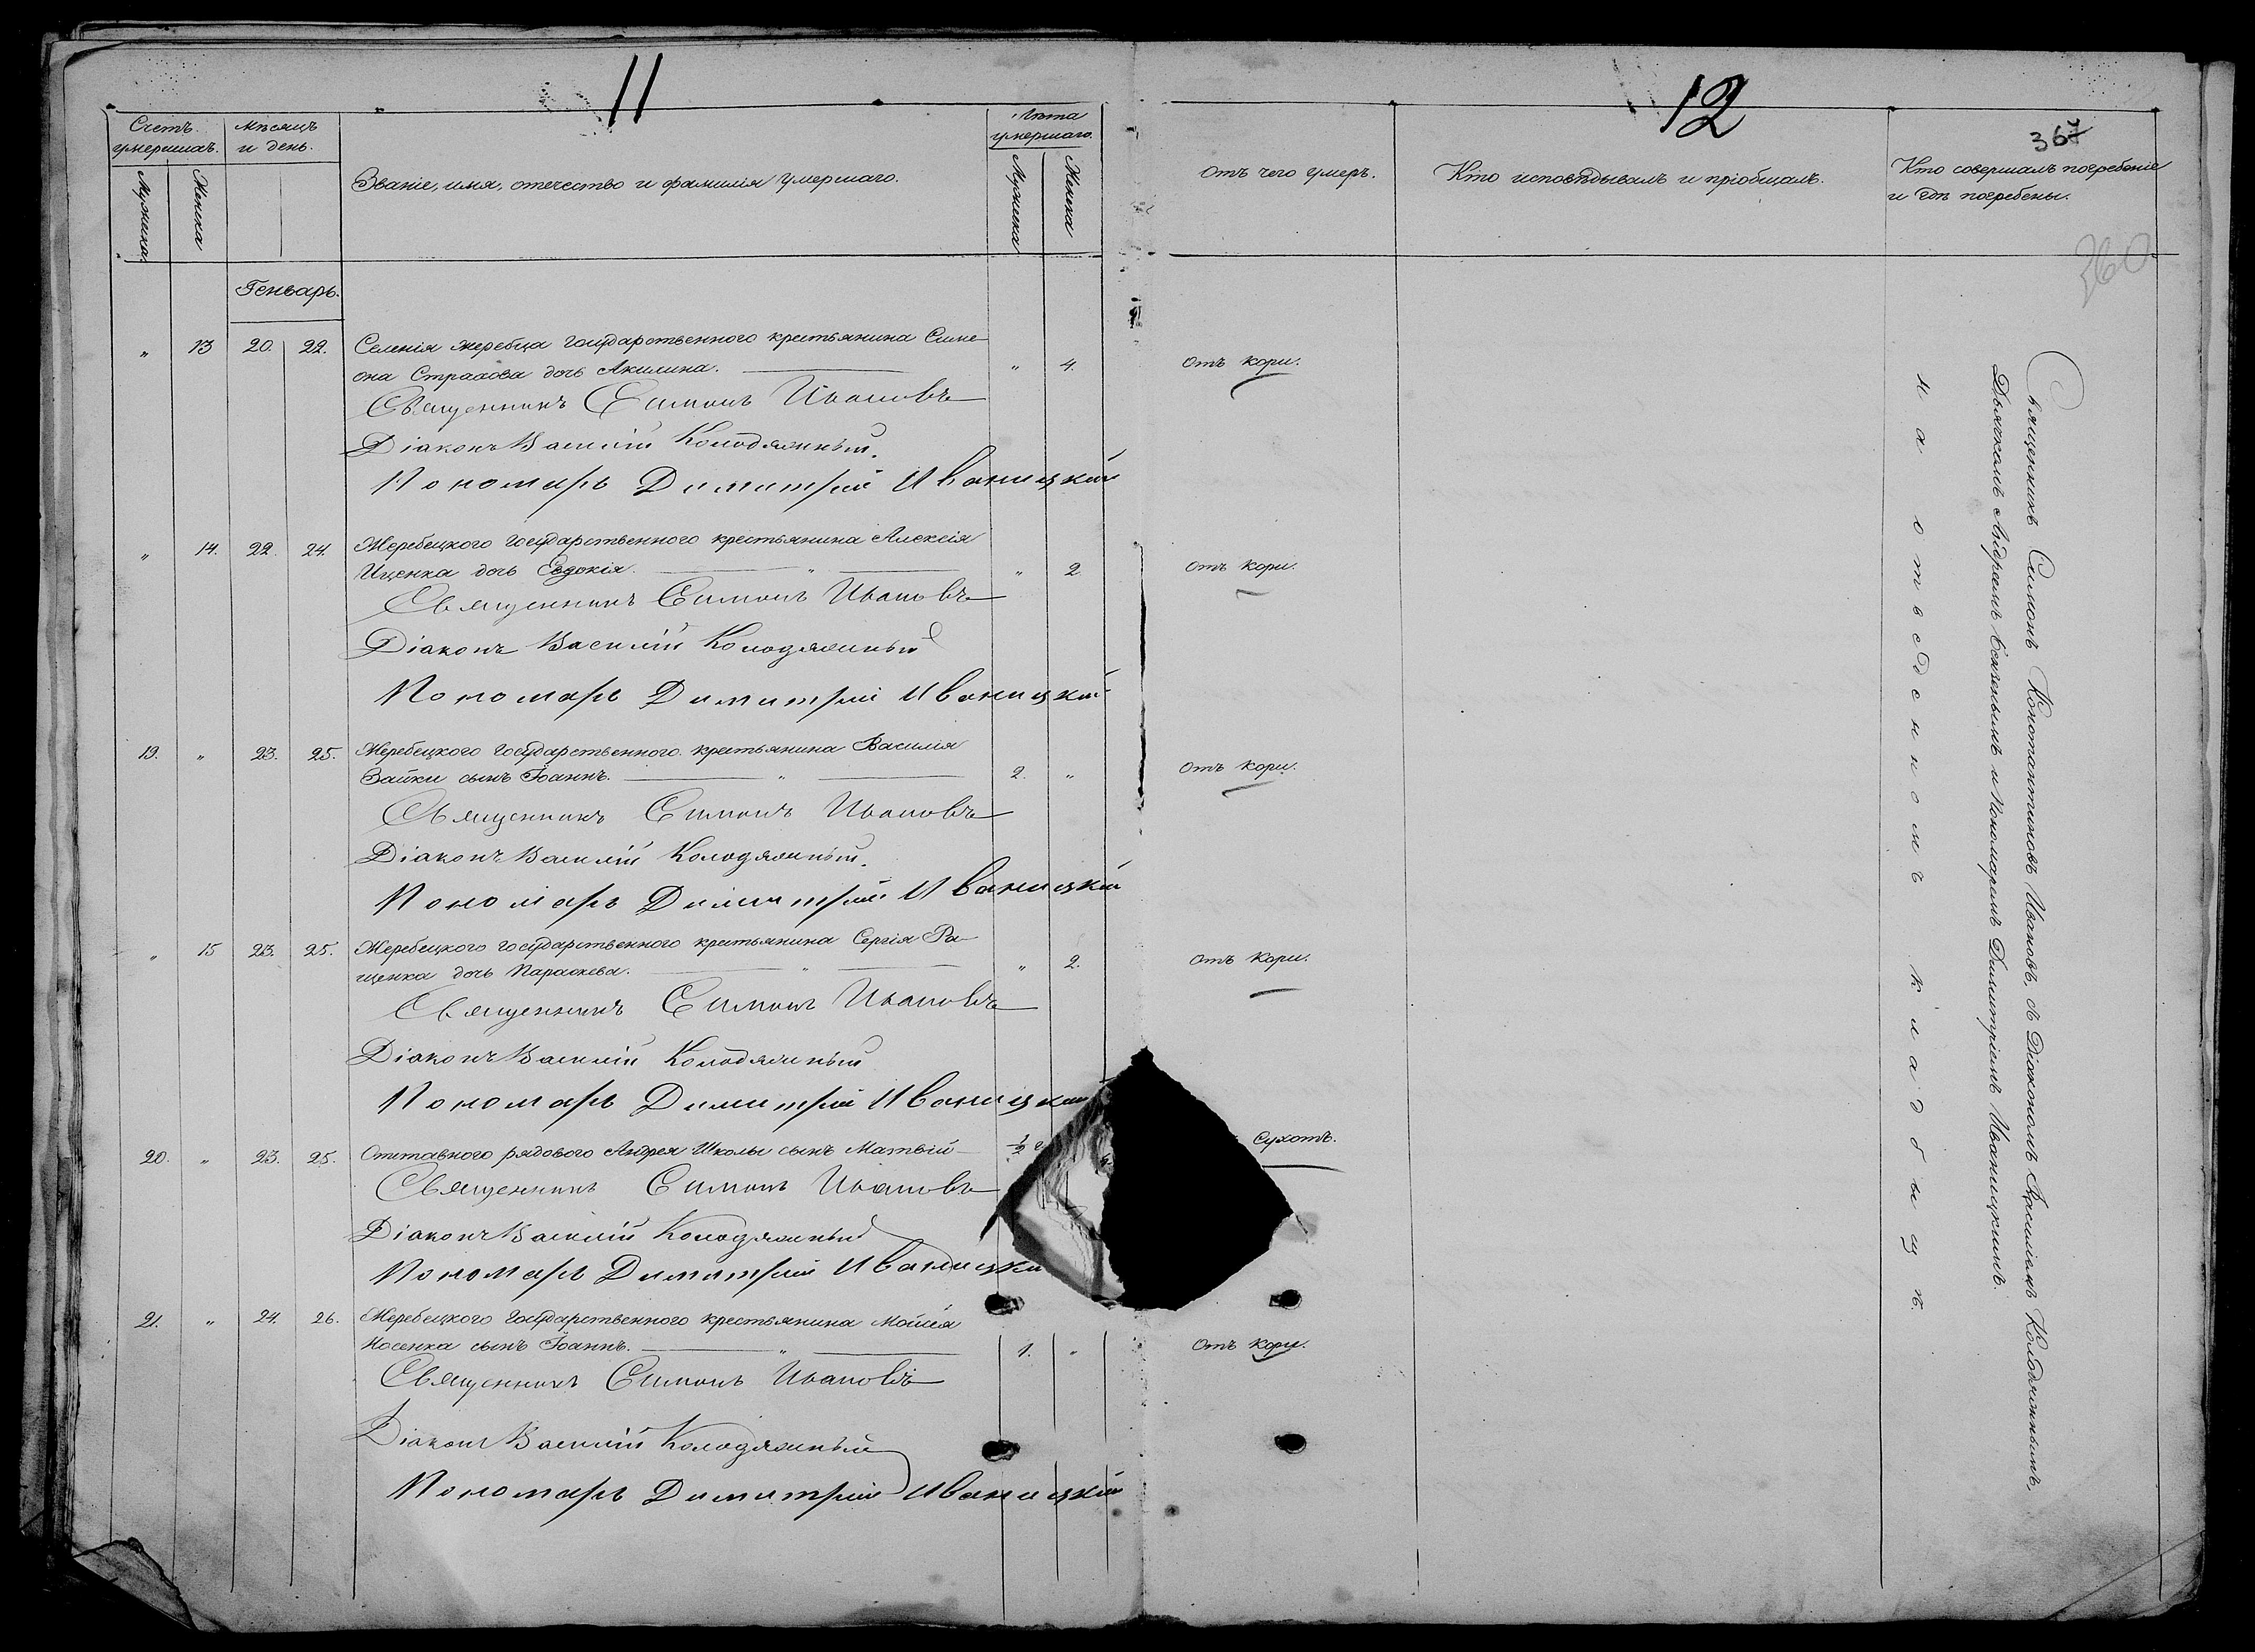 11
12
367
360
Счетъ умершихъ.
Мужеска
Женска
Мѣсяцъ и день.
Званіе, имя, отечество и фамилія умершаго.
Лѣта умершаго.
Мужеска
Женска
Отъ чего умеръ.
Кто исповѣдывалъ и пріобщалъ.
Кто совершалъ погребеніе
и гдѣ погребены.
Генварь.
" 13 20. 22. Селенія Жеребца государственного крестьянина Симе-
она Страхова дочь Акилина. " 4. Отъ кори.
Священникъ Симонъ Ивановъ
Діаконъ Василій Колодяжный.
Пономарь Димитрій Иваницкій
" 14. 22. 24. Жеребецкого государственного крестьянина Алексія
Ищенка дочь Евдокія. " " 2. Отъ кори.
Священникъ Симонъ Ивановъ
Діаконъ Василій Колодяжный
Пономарь Димитрій Иваницкій
19. " 23. 25. Жеребецкого государственного крестьянина Василія
Зайки сынъ Іоаннъ. " 2. " Отъ кори.
Священникъ Симонъ Ивановъ
Діаконъ Василій Колодяжный.
Пономарь Димитрій Иваницкій
" 15 23. 25. Жеребецкого государственного крестьянина Сергія Ра-
щенка дочь Параскева. " " 2. Отъ кори.
Священникъ Симонъ Ивановъ
Діаконъ Василій Колодяжный
Пономарь Димитрій Иваницкій
20. " 23. 25. Отставного рядового Андрея Школы сынъ Матвій ½ Сухотъ.
Священникъ Симонъ Ивановъ
Діаконъ Василій Колодяжный
Пономарь Димитрій Иваницкі
21. " 24. 26. Жеребецкого государственного крестьянина Мойсея
Носенка сынъ Іоаннъ. " 1. " Отъ кори.
Священникъ Симонъ Ивановъ
Діаконъ Василій Колодяжный
Пономарь Димитрій Иваницкій
Священникъ Симонъ Константиновъ Ивановъ, съ Діакономъ Василіемъ Колодяжнымъ,
Дьячкомъ Андреемъ и Пономаремъ Димитріемъ Иваницкимъ.
на отведенномъ кладбищѣ.